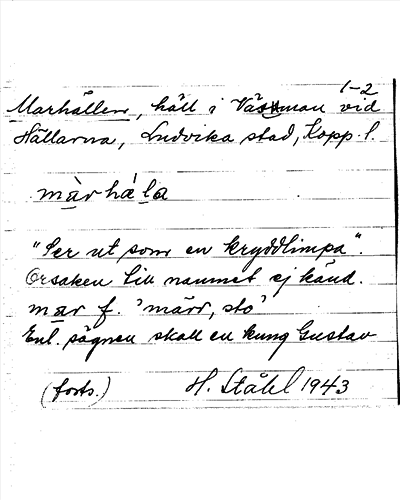 1-2
Marhällen, häll i Väsman vid
Hällarna, Ludvika stad, Kopp. l.
màrhàla
"Ser ut som en kryddlimpa".
Orsaken till namnet ej känd.
mar f. 'märr, sto'
Enl. sägnen skall en kung Gustav
(forts.) H. Ståhl 1943